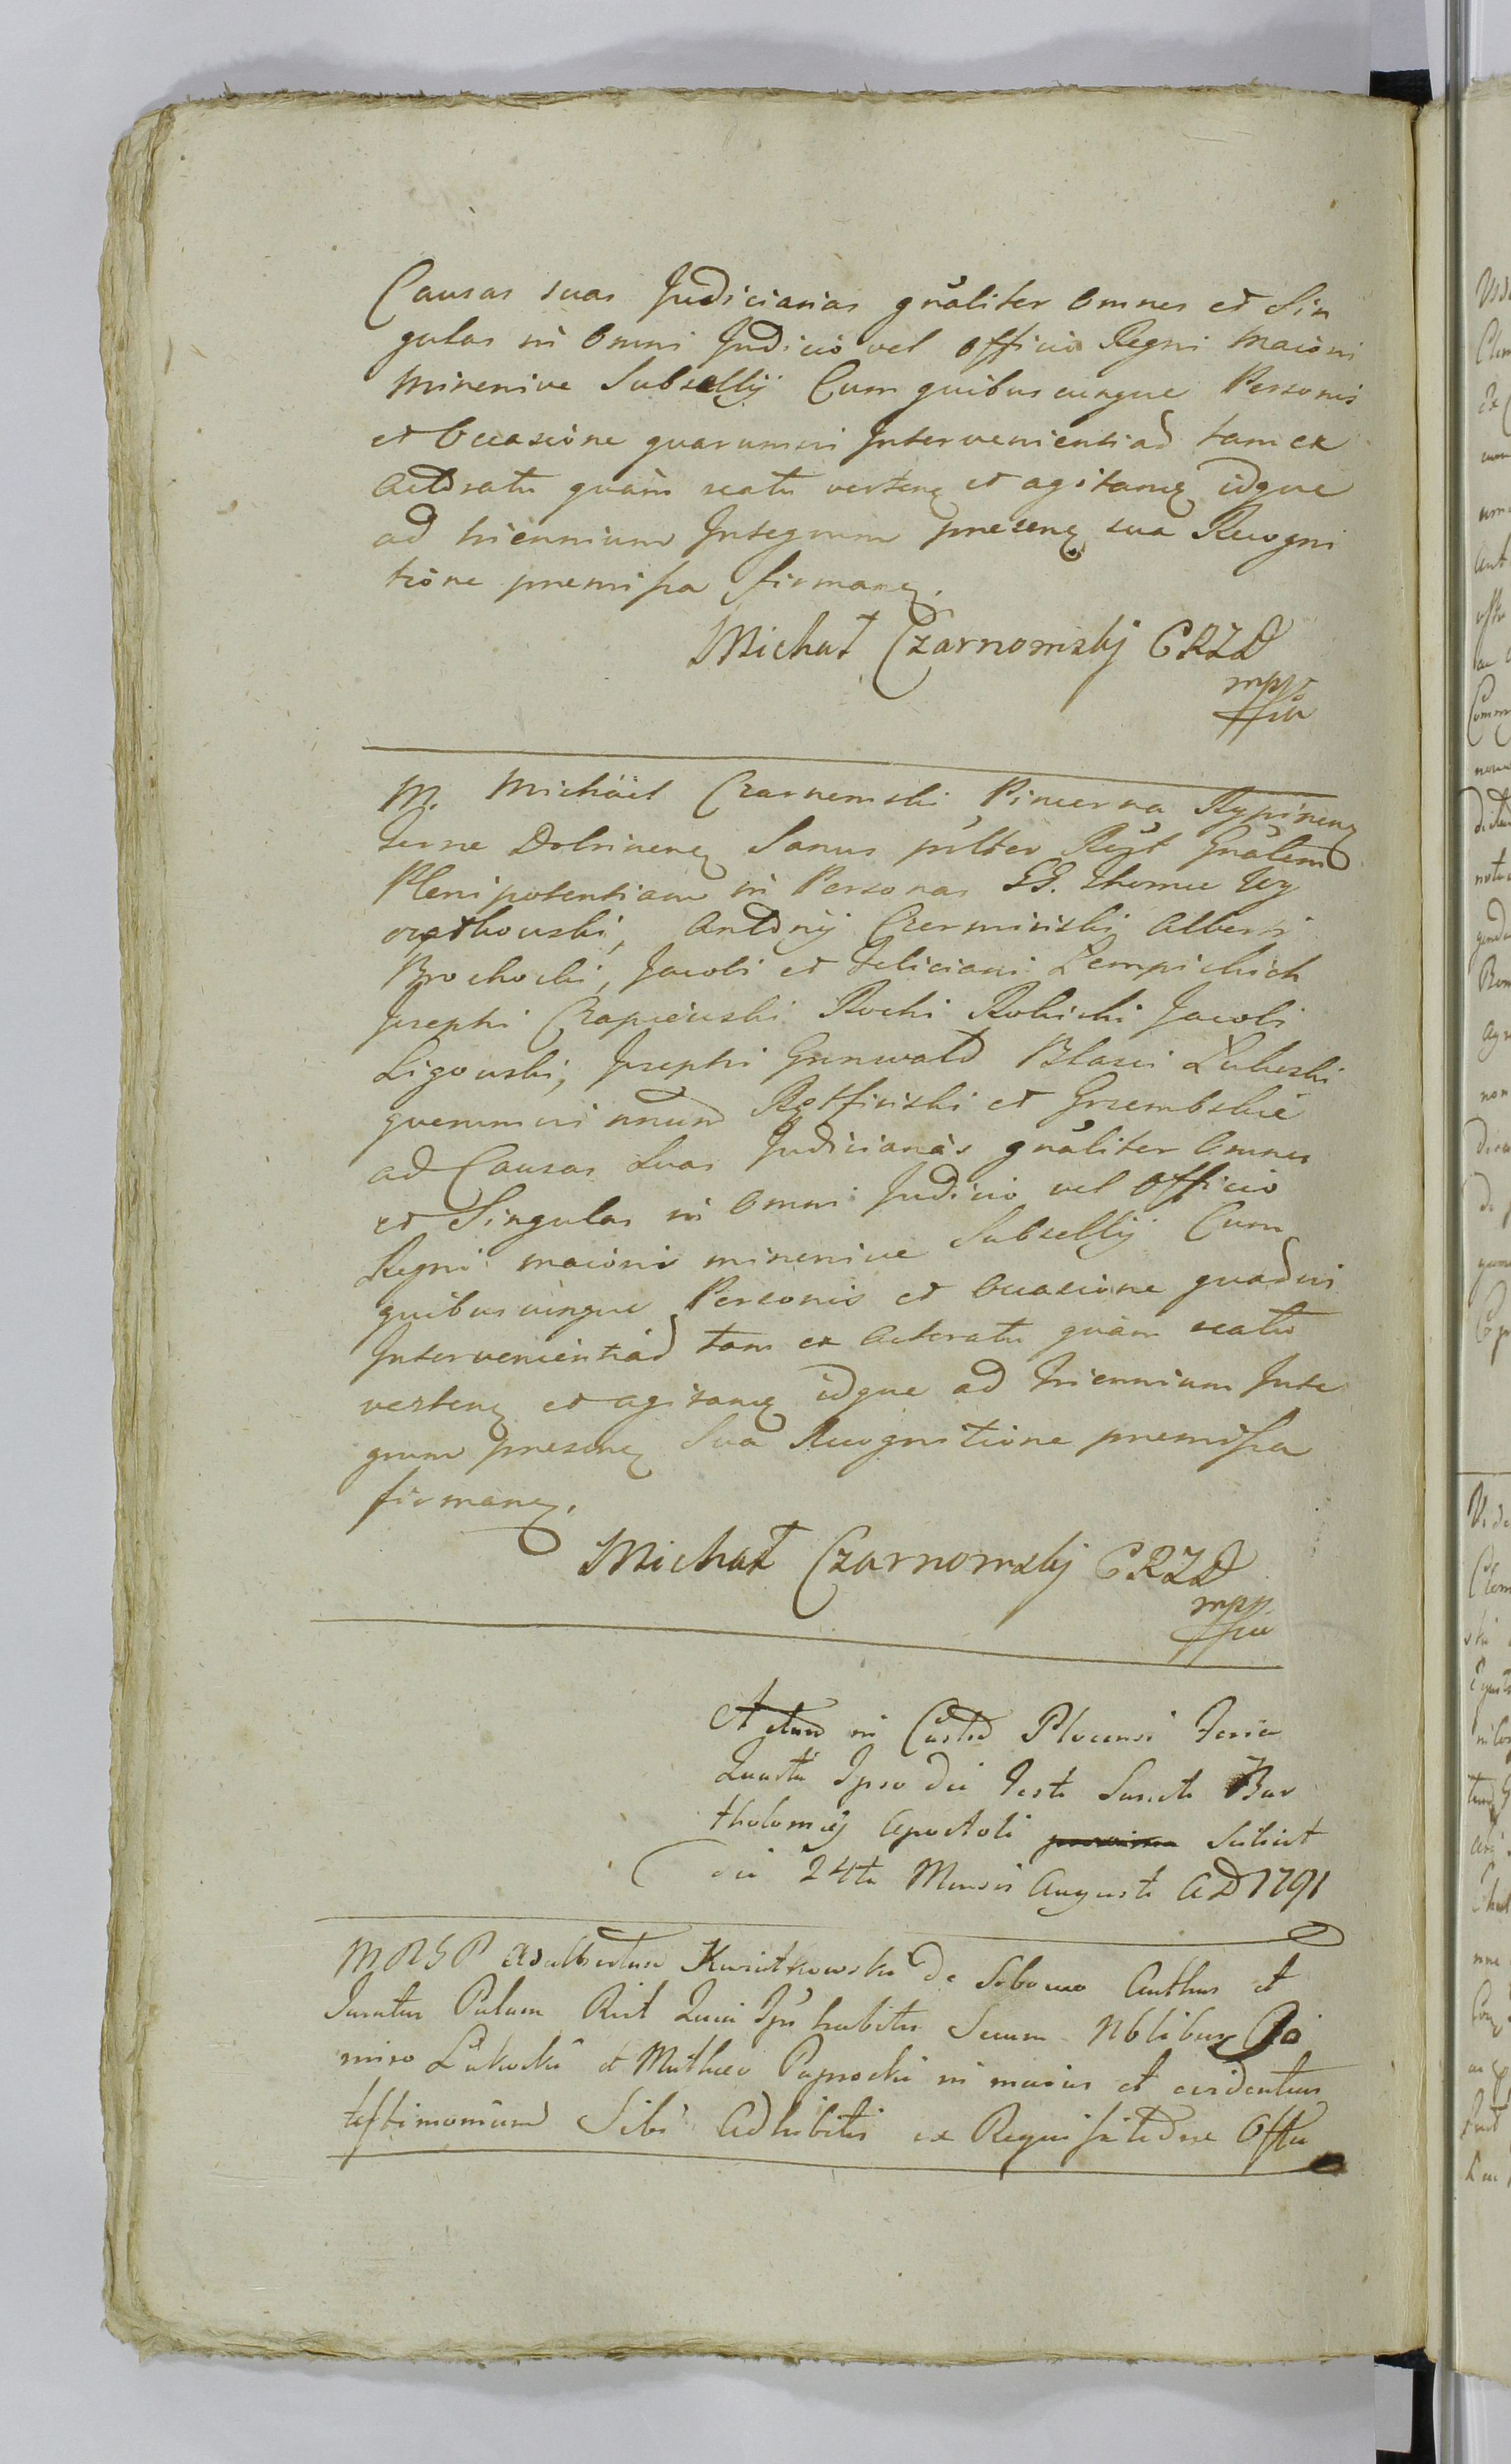 Causas suas Judiciarias gnaliter Omnes et Sin
gulas in Omni Judicio vel Officio Regni Maioris
Minorisve Subsellij Cum quibuscunque Personis
et Occasione quarumvis Intervenientiad tam ex
Actoratu quàm reatu verten et agitan idque
ad triennium Integrum presen sua Recogni
tione premissa firman.
Michał Czarnomskij CRZD
mpp
M. Michäel Czarnomski Pincerna Rypinen
Terrae Dobrinen Sanus pnlter Rgt Gnalem
Plenipotentiam in Personas GG. Thomae
Antonij Czermiński Alberti
Brochocki, Jacobi et Feliciani Łempickich
Josephi Czapiewski Rochi Rokicki Jacobi
Ligowski, Josephi Grunwald Blasii Łubeski
quemvis unum et Grzembskie
ad Causas Suas Judiciarias gnaliter Omnes
et Singulas in Omni Judicio vel Officio
Regni maioris minorisve Subsellij Cum
quibuscunque Personis et Occasione quadvis
Intervenientiad tam ex Actoratu quàm reatu
verten et agitan idque ad triennium Inte
grum presen Sua Recognitione premissa
firman.
Michał Czarnomskij CRZD
mpp
Actum in Castro Plocensi Feria
Quarta Ipso die Festi Sancti Bar
tholomaej Apostoli Scilicet
die 24ta Mensis Augusti AD 1791
MRGP Adalbertus Kwiatkowski de Sobowo Authus et
Juratus Palam Rcit Quia Ipse habitis Secum Nblibus
miro Łukocki et Matheo Paprocki in maius et evidentius
testimonium Sibi Adhibitis ex Requisitione Offu